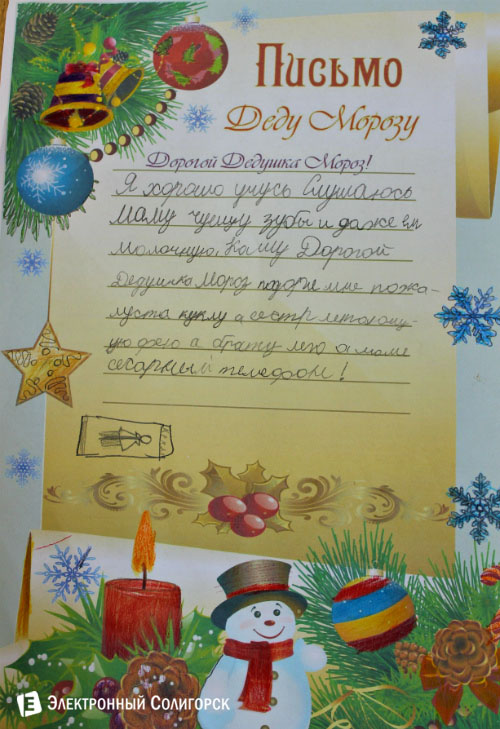 Письмо
Деду Морозу
Дорогой Дедушка Мороз!
Я хорошо учусь Слушаюсь
маму чищу зубы и даже ем
молочную, кашу Дорогой
Дедушка Мороз подари мне пожа-
луста куклу а сестре летающу-
ую фею а брату лего а маме
себарный телефон!
Электронный Солигорск